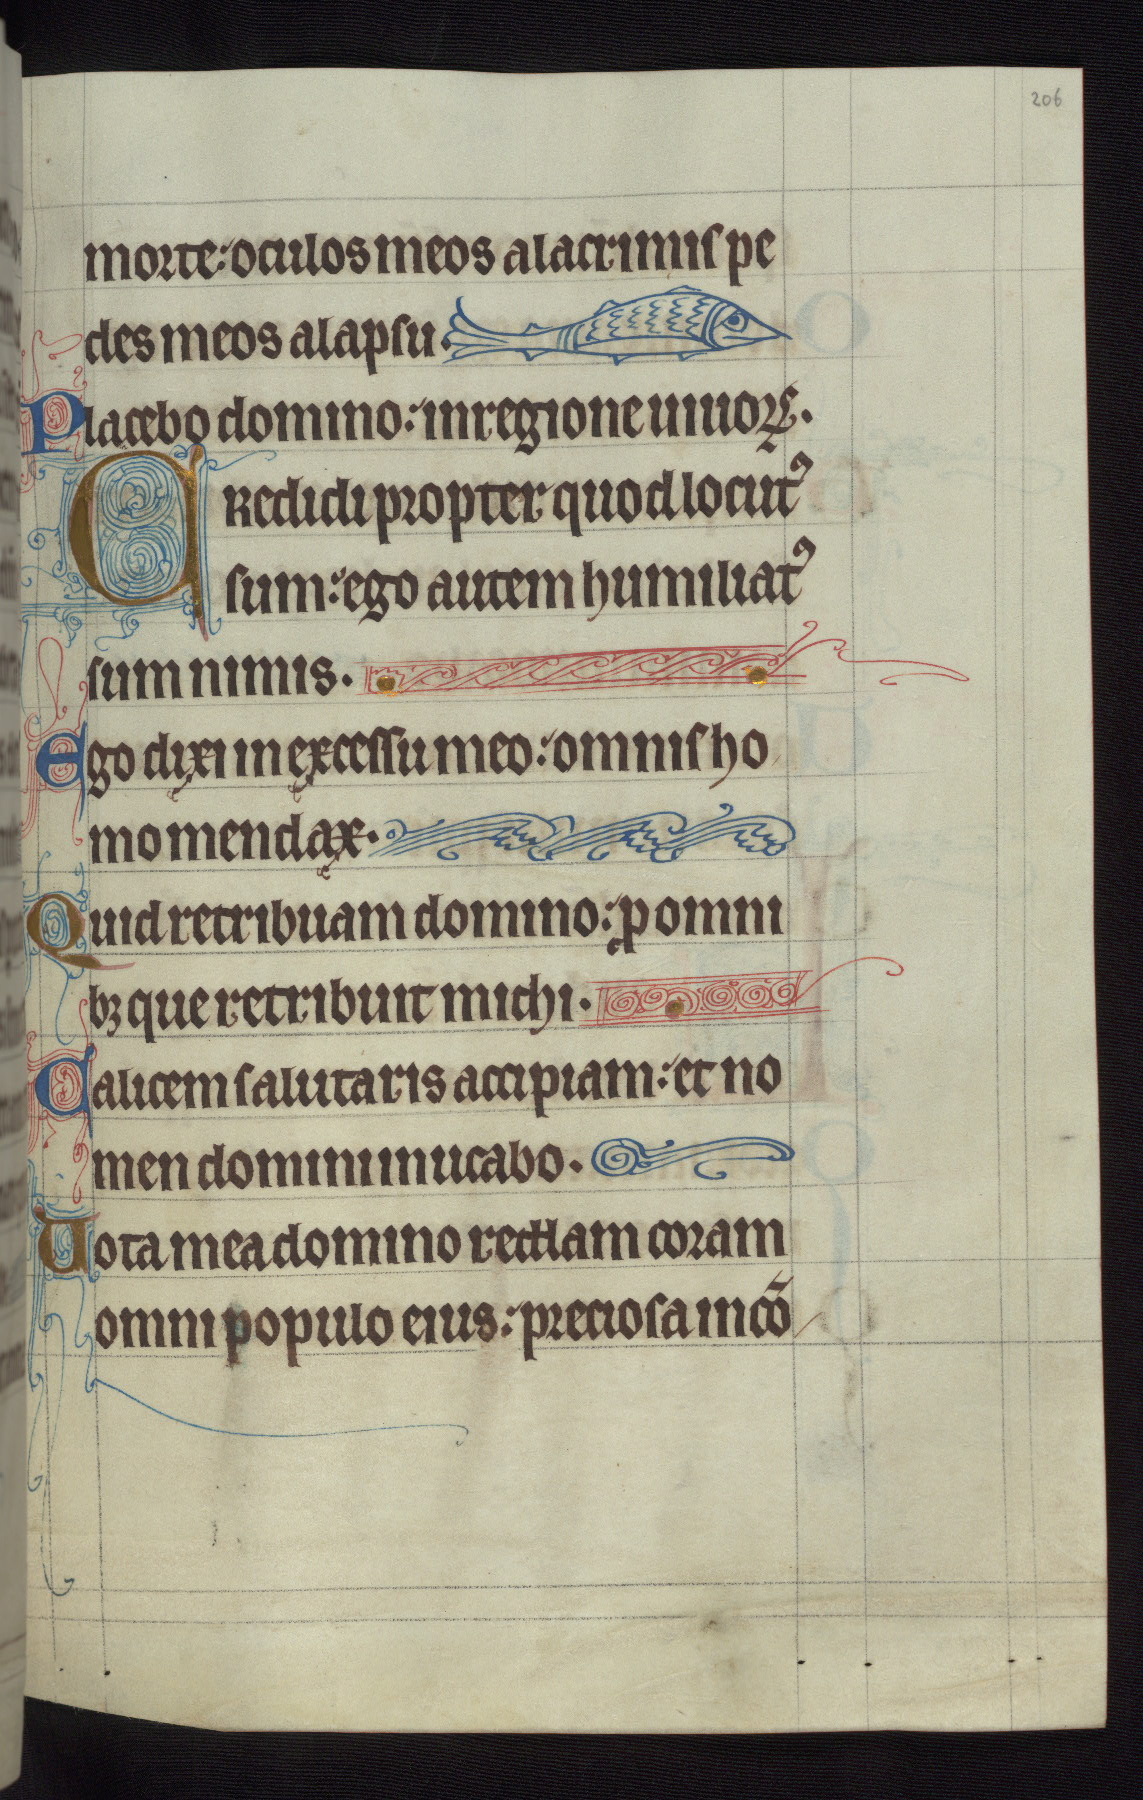 206
morte: oculos meos a lacrimis pe
des meos a lapsu.
Placebo domino: in regione uiuoꝝ.
Credidi propter quod locutꝰ
sum: ego autem humiliatꝰ
sum nimis.
Ego dixi in excessu meo: omnis ho
mo mendax.
Quid retribuam domino: ꝓ omni
bꝫ que retribuit michi.
Calicem salutaris accipiam: et no
men domini inuocabo.
Uota mea domino reddam coram
omni populo eius: preciosa in cō